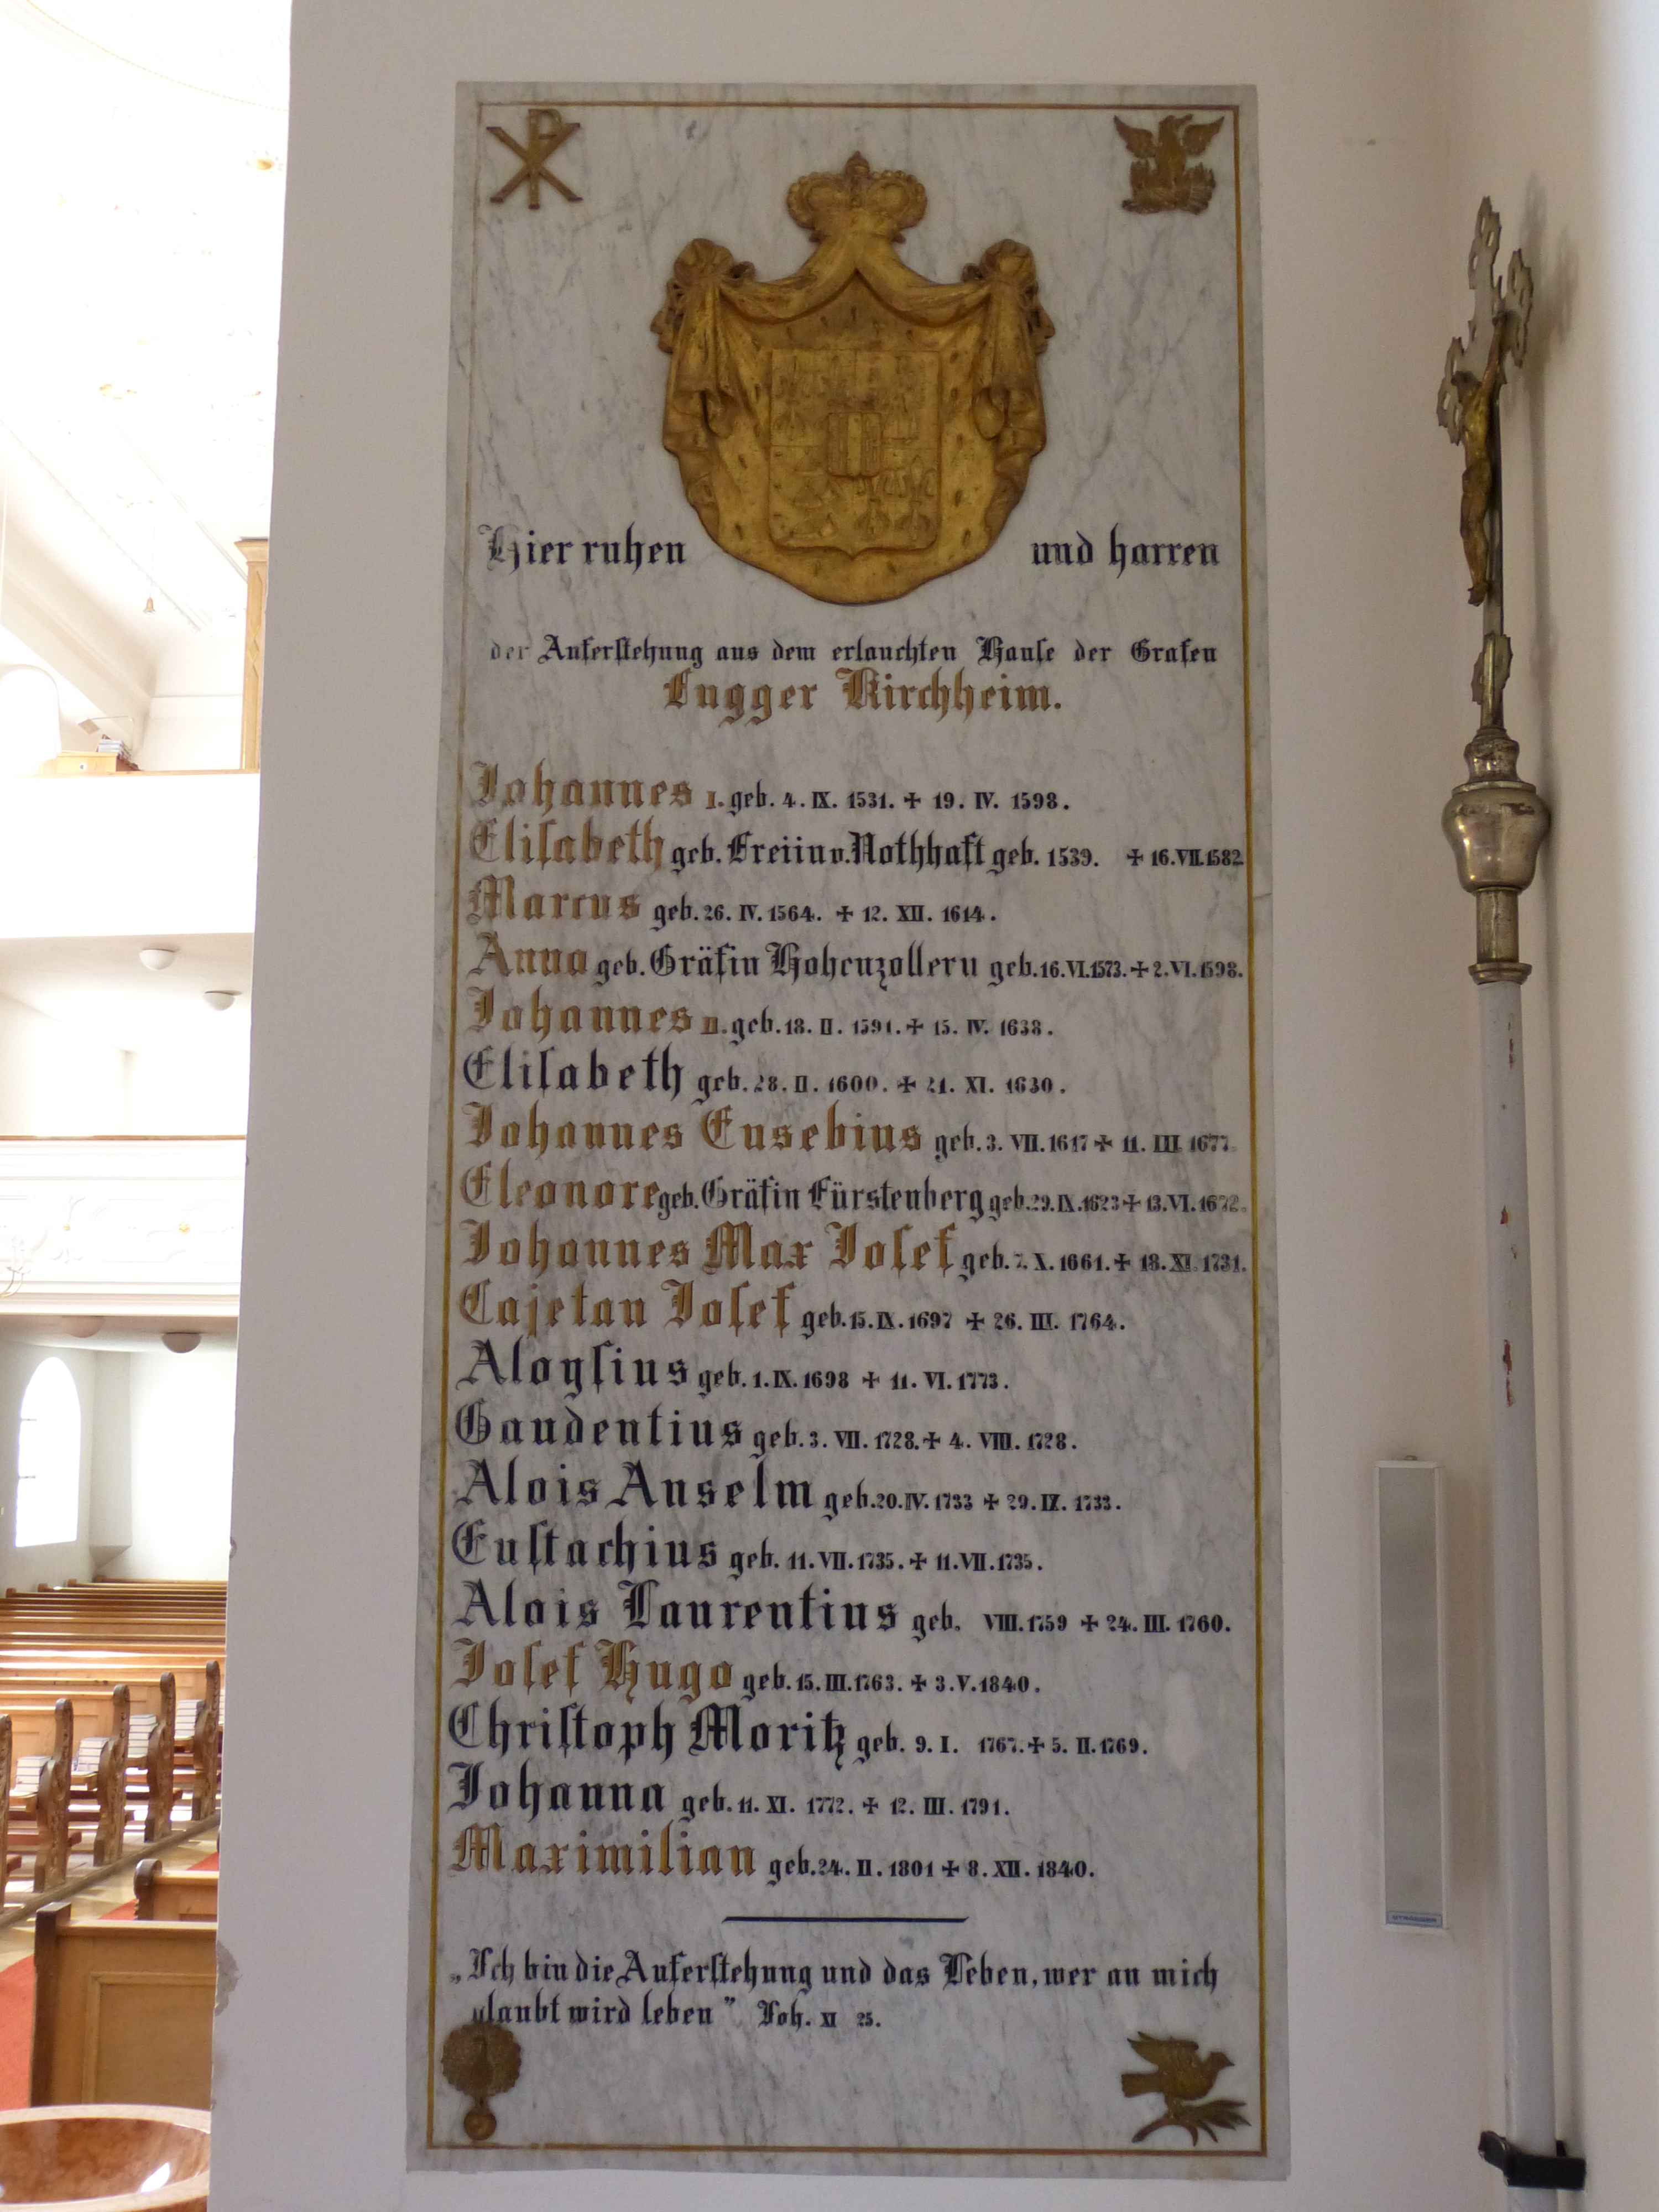 Hier ruhen und harren
der Auferstehung aus dem erlauchten Hause der Grafen
Fugger Kirchheim.
Johannes I. geb. 4. IX. 1531. + 19. IV. 1598.
Elisabeth geb. Freiin v. Nothhaft geb. 1539. + 16. VII. 1582.
Marcus geb. 26. IV. 1564. + 12. XII. 1614.
Anna geb. Gräfin Hohenzollern geb. 16. VI. 1573. + 2. VI. 1598.
Johannes II. geb. 18. II. 1591. + 15. IV. 1638.
Elisabeth geb. 28. II. 1600. + 21. XI. 1630.
Johannes Eusebius geb. 3. VII. 1617 + 11. III. 1677.
Eleonore geb. Gräfin Fürstenberg geb. 29. IX. 1623 + 13. VI. 1672.
Johannes Max Josef geb. 7. X. 1661. + 18. XI. 1731.
Cajetan Josef geb. 15. IX. 1697 + 26. III. 1764.
Aloysius geb. 1. IX. 1698 + 11. VI. 1773.
Gaudentius geb. 3. VII. 1728. + 4. VIII. 1728.
Alois Anselm geb. 20. IV. 1733 + 29. IX. 1733.
Eustachius geb. 11. VII. 1735. + 11. VII. 1735.
Alois Laurentius geb. VIII. 1759 + 24. III. 1760.
Josef Hugo geb. 15. III. 1763. + 3. V. 1840.
Christoph Moritz geb. 9. I. 1767. + 5. II. 1769.
Johanna geb. 11. XI. 1772. + 12. III. 1791.
Maximilian geb. 24. II. 1801 + 8. XII. 1840.
„Ich bin die Auferstehung und das Leben, wer an mich
glaubt wird leben" Joh. XI 25.